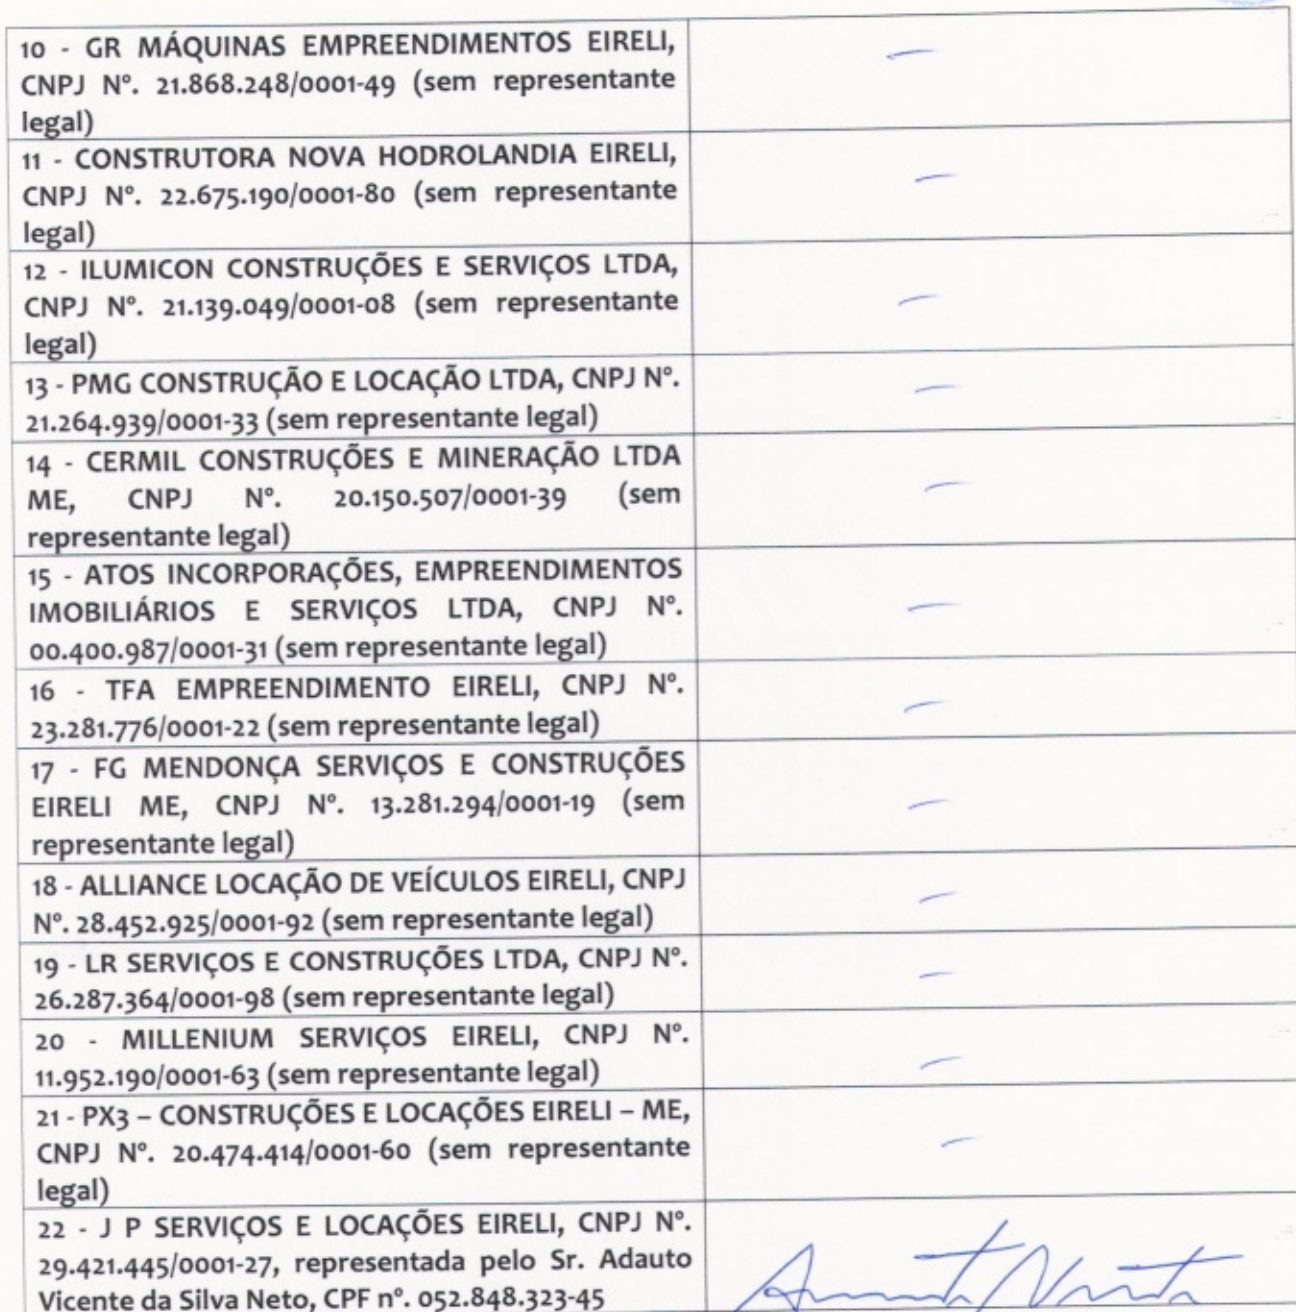 10 - GR MÁQUINAS EMPREENDIMENTOS EIRELI,
CNPJ Nº. 21.868.248/0001-49 (sem representante
legal)
11 - CONSTRUTORA NOVA HODROLANDIA EIRELI,
CNPJ Nº. 22.675.190/0001-80 (sem representante
legal)
12 - ILUMICON CONSTRUÇÕES E SERVIÇOS LTDA,
CNPJ Nº. 21.139.049/0001-08 (sem representante
legal)
13 - PMG CONSTRUÇÃO E LOCAÇÃO LTDA, CNPJ Nº.
21.264.939/0001-33 (sem representante legal)
14 - CERMIL CONSTRUÇÕES E MINERAÇÃO LTDA
ME, CNPJ Nº. 20.150.507/0001-39 (sem
representante legal)
15 - ATOS INCORPORAÇÕES, EMPREENDIMENTOS
IMOBILIÁRIOS E SERVIÇOS LTDA, CNPJ Nº.
00.400.987/0001-31 (sem representante legal)
16 - TFA EMPREENDIMENTO EIRELI, CNPJ Nº.
23.281.776/0001-22 (sem representante legal)
17 - FG MENDONÇA SERVIÇOS E CONSTRUÇÕES
EIRELI ME, CNPJ Nº. 13.281.294/0001-19 (sem
representante legal)
18 - ALLIANCE LOCAÇÃO DE VEÍCULOS EIRELI, CNPJ
Nº. 28.452.925/0001-92 (sem representante legal)
19 - LR SERVIÇOS E CONSTRUÇÕES LTDA, CNPJ Nº.
26.287.364/0001-98 (sem representante legal)
20 - MILLENIUM SERVIÇOS EIRELI, CNPJ Nº.
11.952.190/0001-63 (sem representante legal)
21 - PX3 – CONSTRUÇÕES E LOCAÇÕES EIRELI – ME,
CNPJ Nº. 20.474.414/0001-60 (sem representante
legal)
22 - J P SERVIÇOS E LOCAÇÕES EIRELI, CNPJ Nº.
29.421.445/0001-27, representada pelo Sr. Adauto
Vicente da Silva Neto, CPF nº. 052.848.323-45